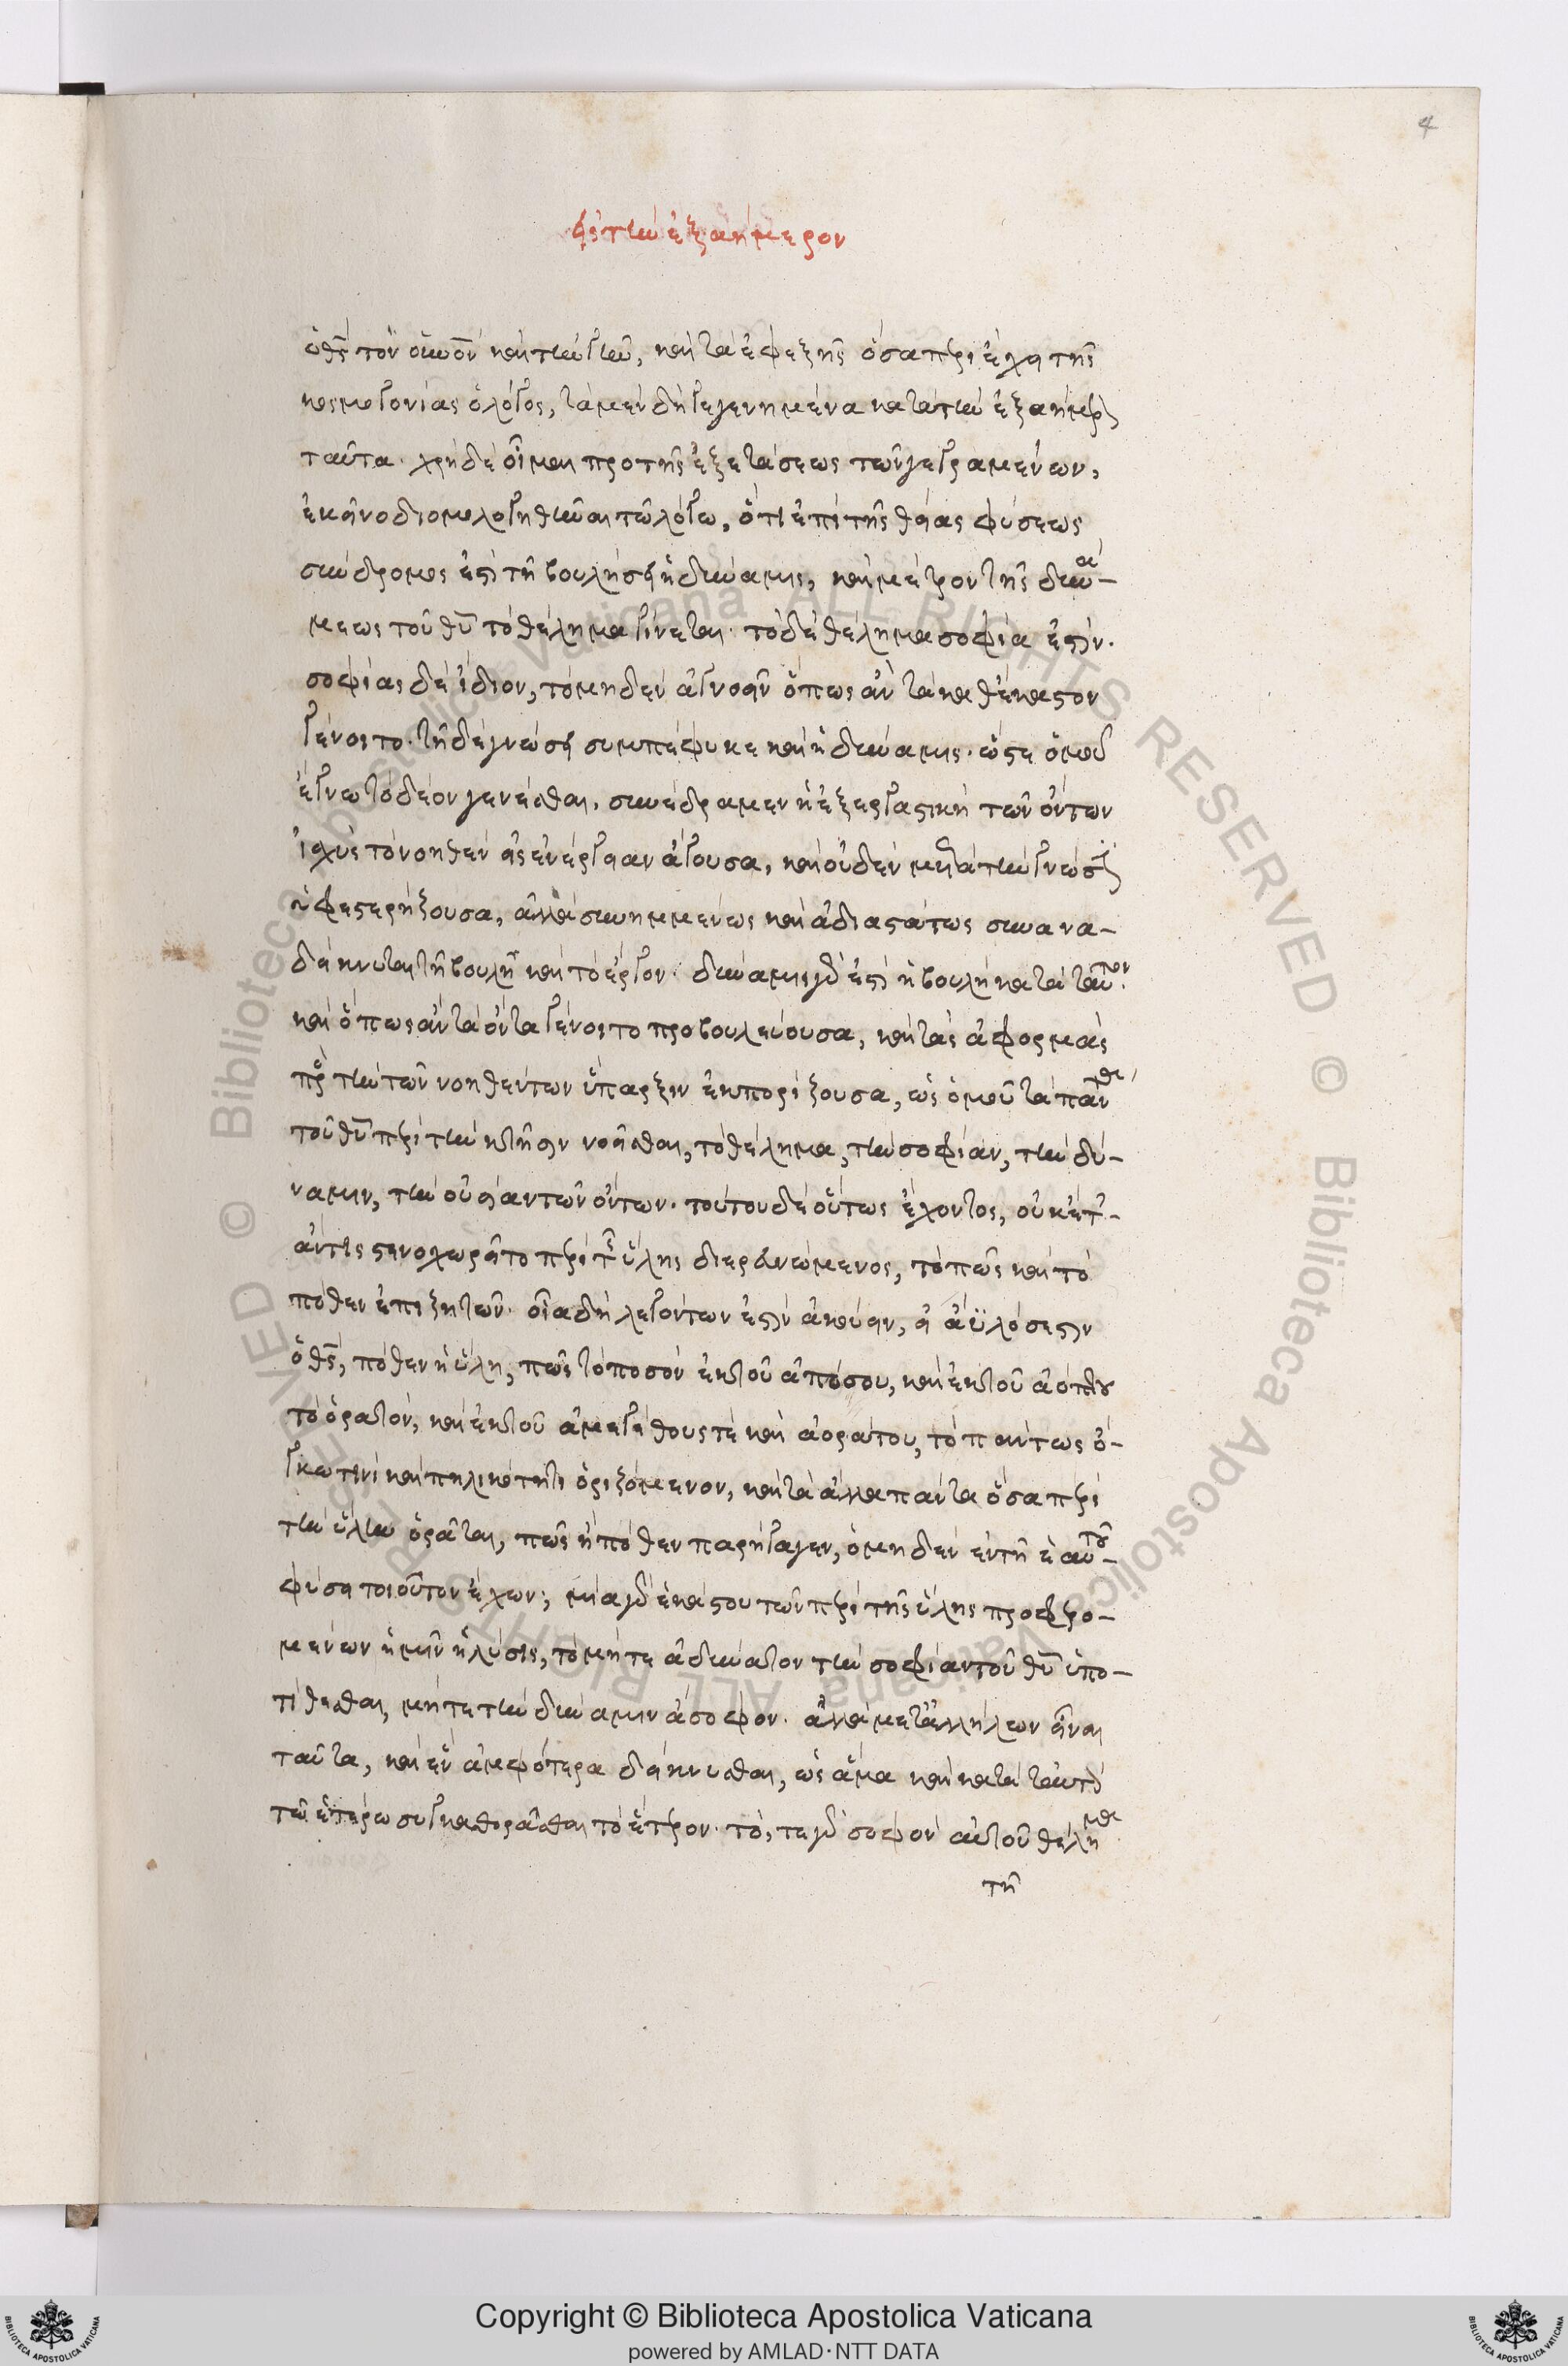 4
εἰς τὴν ἑξαήμερον
ὁ θς τὸν οὐνον καὶ τὴν γῆν, καὶ τὰ ἐφεξῆς ὅσα περιέχει τῆς
κοσμογονίας ὁ λόγος, τὰ μὲν δὴ γεγενημένα κατὰ τὴν ἑξαήμερον
ταῦτα. χρὴ δὲ οἶμαι προ τῆς ἐξετάσεως τῶν γεγραμένων,
ἐκεῖνο διομολογηθῆναι τῶ λόγω, ὅτι ἐπὶ τῆς θείας φύσεως
σύνδρομός ἐστι τῆ βουλήσει ἡ δύναμις, καὶ μέτρον τῆς δυνά-
μεως τοῦ θυ τὸ θέλημα γίνεται. τὸ δὲ θέλημα σοφία ἐστίν.
σοφίας δὲ ἴδιον, τὸ μηδὲν ἀγνοεῖν ὅπως ἂν τὰ καθ' ἕκαστον
γένοιτο. τῆ δὲ γνώσει συμπέφυκε καὶ ἡ δύναμις. ὥστε ὁμοῦ
ἔγνω τὸ δέον γενέσθαι. συνέδραμεν ἡ ἐξεργαστικὴ τῶν ὄντων
ἰσχὺς τὸ νοηθὲν εἰς ἐνέργειαν ἄγουσα, καὶ οὐδὲν μετὰ τὴν γνῶσιν
ἐφυστερίζουσα, ἀλλὰ συνημμένως καὶ ἀδιαστάτως συνανα-
δείκνυται τῆ βουλῆ καὶ τὸ ἔργον. δύναμις γάρ ἐστι ἡ βουλὴ κατὰ ταυτὸν.
καὶ ὅπως ἂν τὰ ὄντα γένοιτο προβουλεύουσα, καὶ τὰς ἀφορμὰς
πρὸς τὴν τῶν νοηθέντων ὕπαρξιν ἐκπορίζουσα, ὡς ὁμοῦ τὰ πάντα
τοῦ θυ περὶ τὴν κτῆσιν νοεῖσθαι, τὸ θέλημα, τὴν σοφίαν, τὴν δύ-
ναμιν, τὴν οὐσίαν τῶν ὄντων. τούτου δὲ οὕτως ἔχοντος, οὐκέτ'
ἄν τις στενοχωρεῖτο περὶ τῆς ὕλης διερευνώμενος, τὸ πῶς καὶ τὸ
πόθεν ἐπιζητῶν. οἷα δὴ λεγόντων ἐστὶν ἀκούειν, εἰ ἄϋλός ἐστιν
ὁ θς, πόθεν ἡ ὕλη, πῶς τὸ ποσὸν ἐκ τοῦ ἀπόσου, καὶ ἐκ τοῦ ἀοράτου
τὸ ὁρατὸν, καὶ ἐκ τοῦ ἀμεγέθους τὲ καὶ ἀοράτου, τὸ παντως ὄ-
γκω τινὶ καὶ πηλικότητι ὁριζόμενον, καὶ τὰ ἄλλα πάντα ὅσα περὶ
τὴν ὕλην ὁρᾶται, πῶς ἢ πόθεν παρήγαγεν, ὁ μηδὲν ἐν τῆ ἑαυτοῦ
φύσει τοιοῦτον ἔχων; μία γὰρ ἑκάστου τῶν περὶ τῆς ὕλης προφερο-
μένων ἡμῖν ἡ λύσις, τὸ μήτε ἀδύνατον τὴν σοφίαν τοῦ θυ ὑπο-
τίθεσθαι, μήτε τὴν δύναμιν ἄσοφον. ἀλλὰ μετ' ἀλλήλων εἶναι
ταῦτα, καὶ ἓν ἀμφότερα δείκνυσθαι, ὡς ἅμα καὶ κατὰ ταὐτὸ
τῶ ἑτέρω συγκαθορᾶσθαι τὸ ἕτερον. τό, τε γὰρ σοφὸν αὐτοῦ θέλημα
τῆ
Copyright © Biblioteca Apostolica Vaticana
powered by AMLAD·NTT DATA